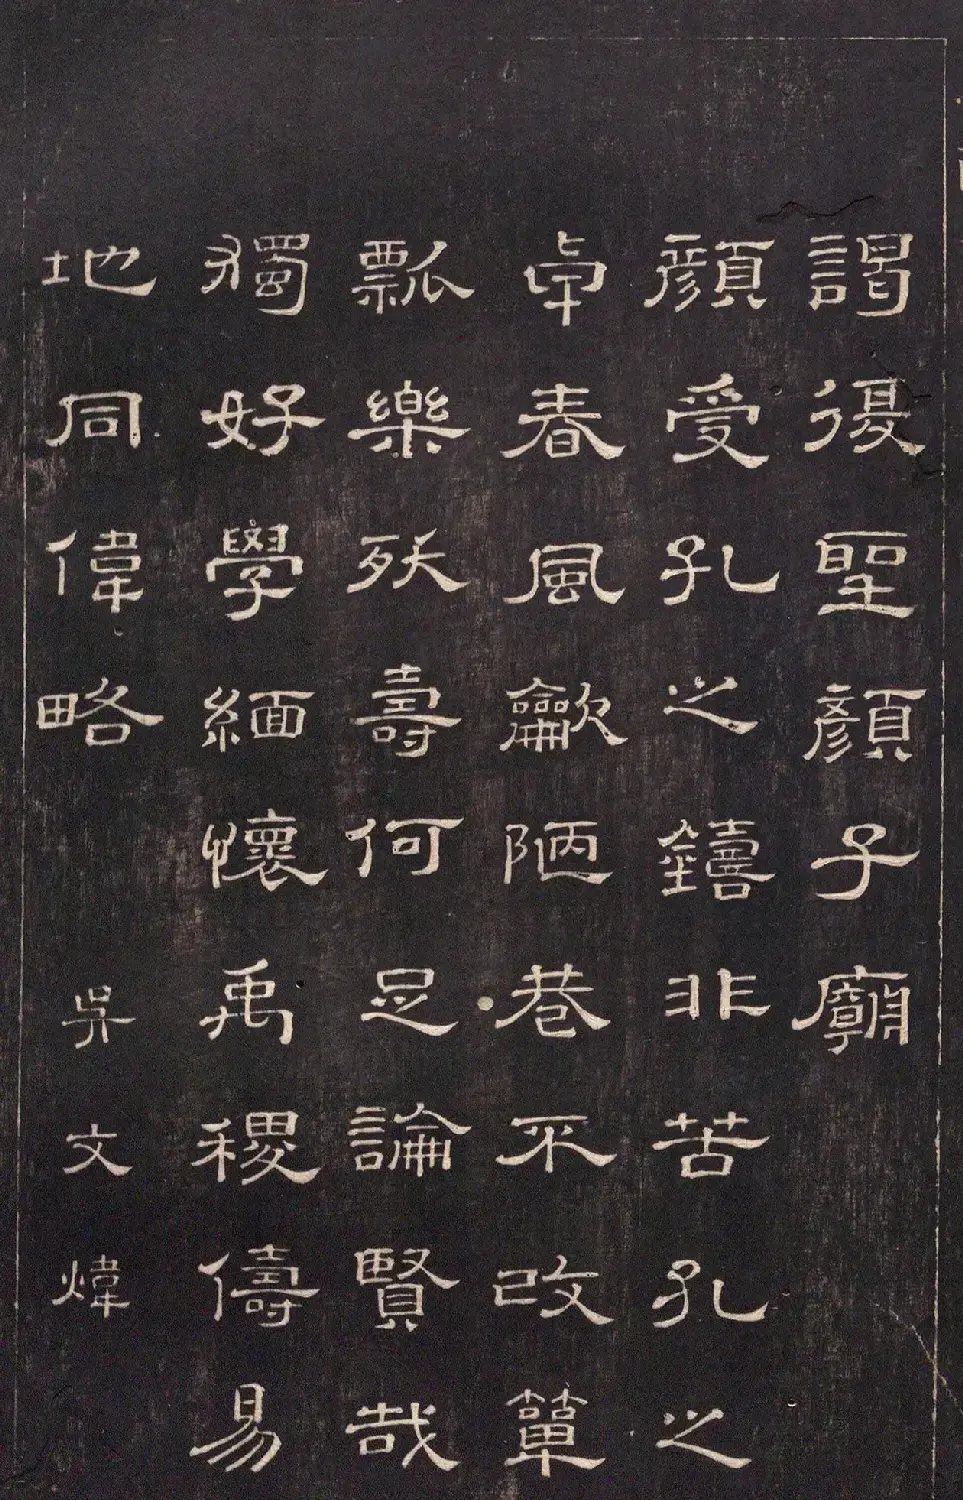 謁復聖顏子廟
顏受孔之鑄非苦孔之
卓春風龡陋巷不改簞
瓢樂殀壽何足論賢哉
獨好學緬懷禹稷儔易
地同偉略 吳文煒